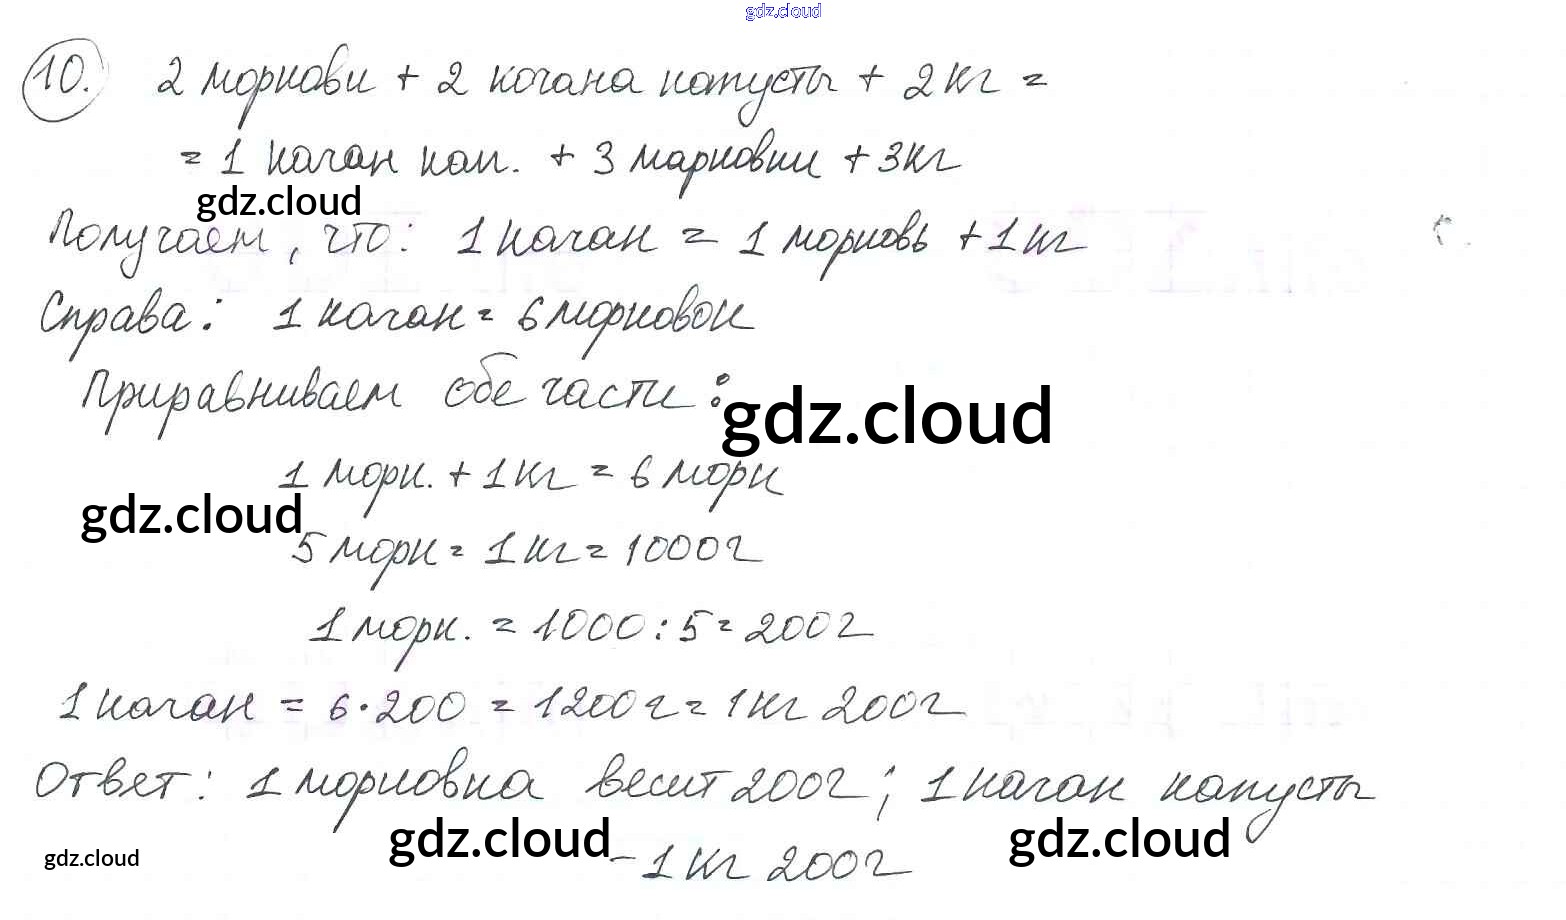 gdz.cloud
10. 2 моркови + 2 кочана капусты + 2 кг =
= 1 качан кап. + 3 марковки + 3кг
gdz.cloud
Получаем, что: 1 качан = 1 морковь + 1 кг
Справа: 1 качан = 6 морковок
Приравниваем обе части:
gdz.cloud
1 морк. + 1 кг = 6 морк
gdz.cloud
5 морк = 1 кг = 1000г
1 морк. = 1000 : 5 = 200г
1 качан = 6 · 200 = 1200 г = 1 кг 200г
Ответ: 1 морковка весит 200г; 1 качан капусты
gdz.cloud gdz.cloud
gdz.cloud
– 1 кг 200г